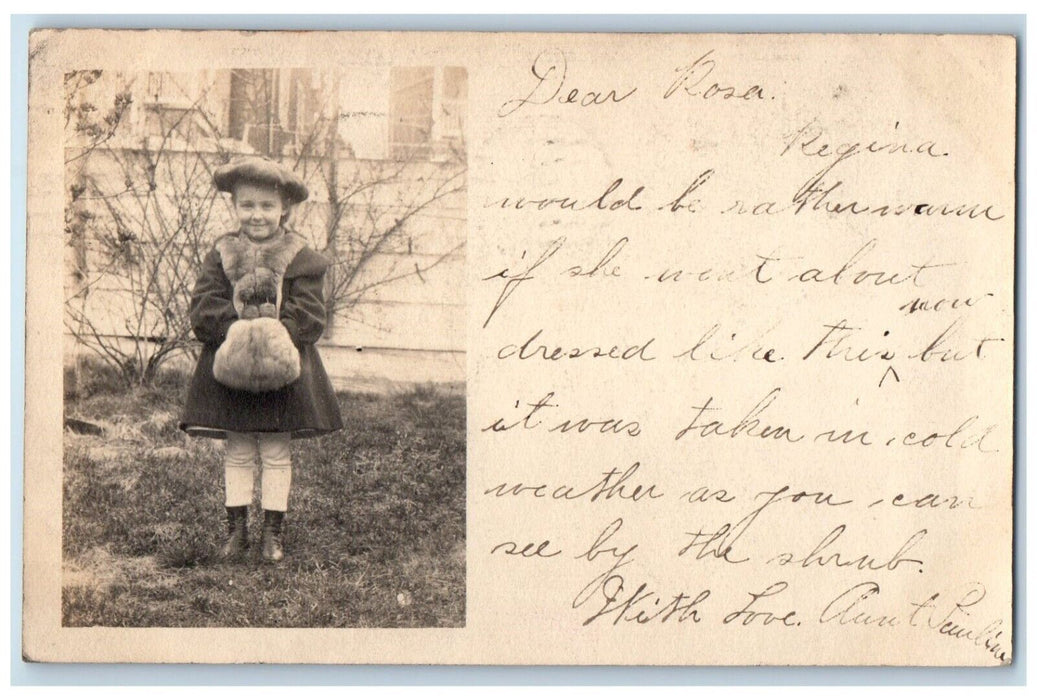 Dear Rosa.
Regina
would be rather warm
if she went about
now
dressed like this, but
it was taken in cold
weather as you can
see by the shrub.
With Love. Aunt Pauline